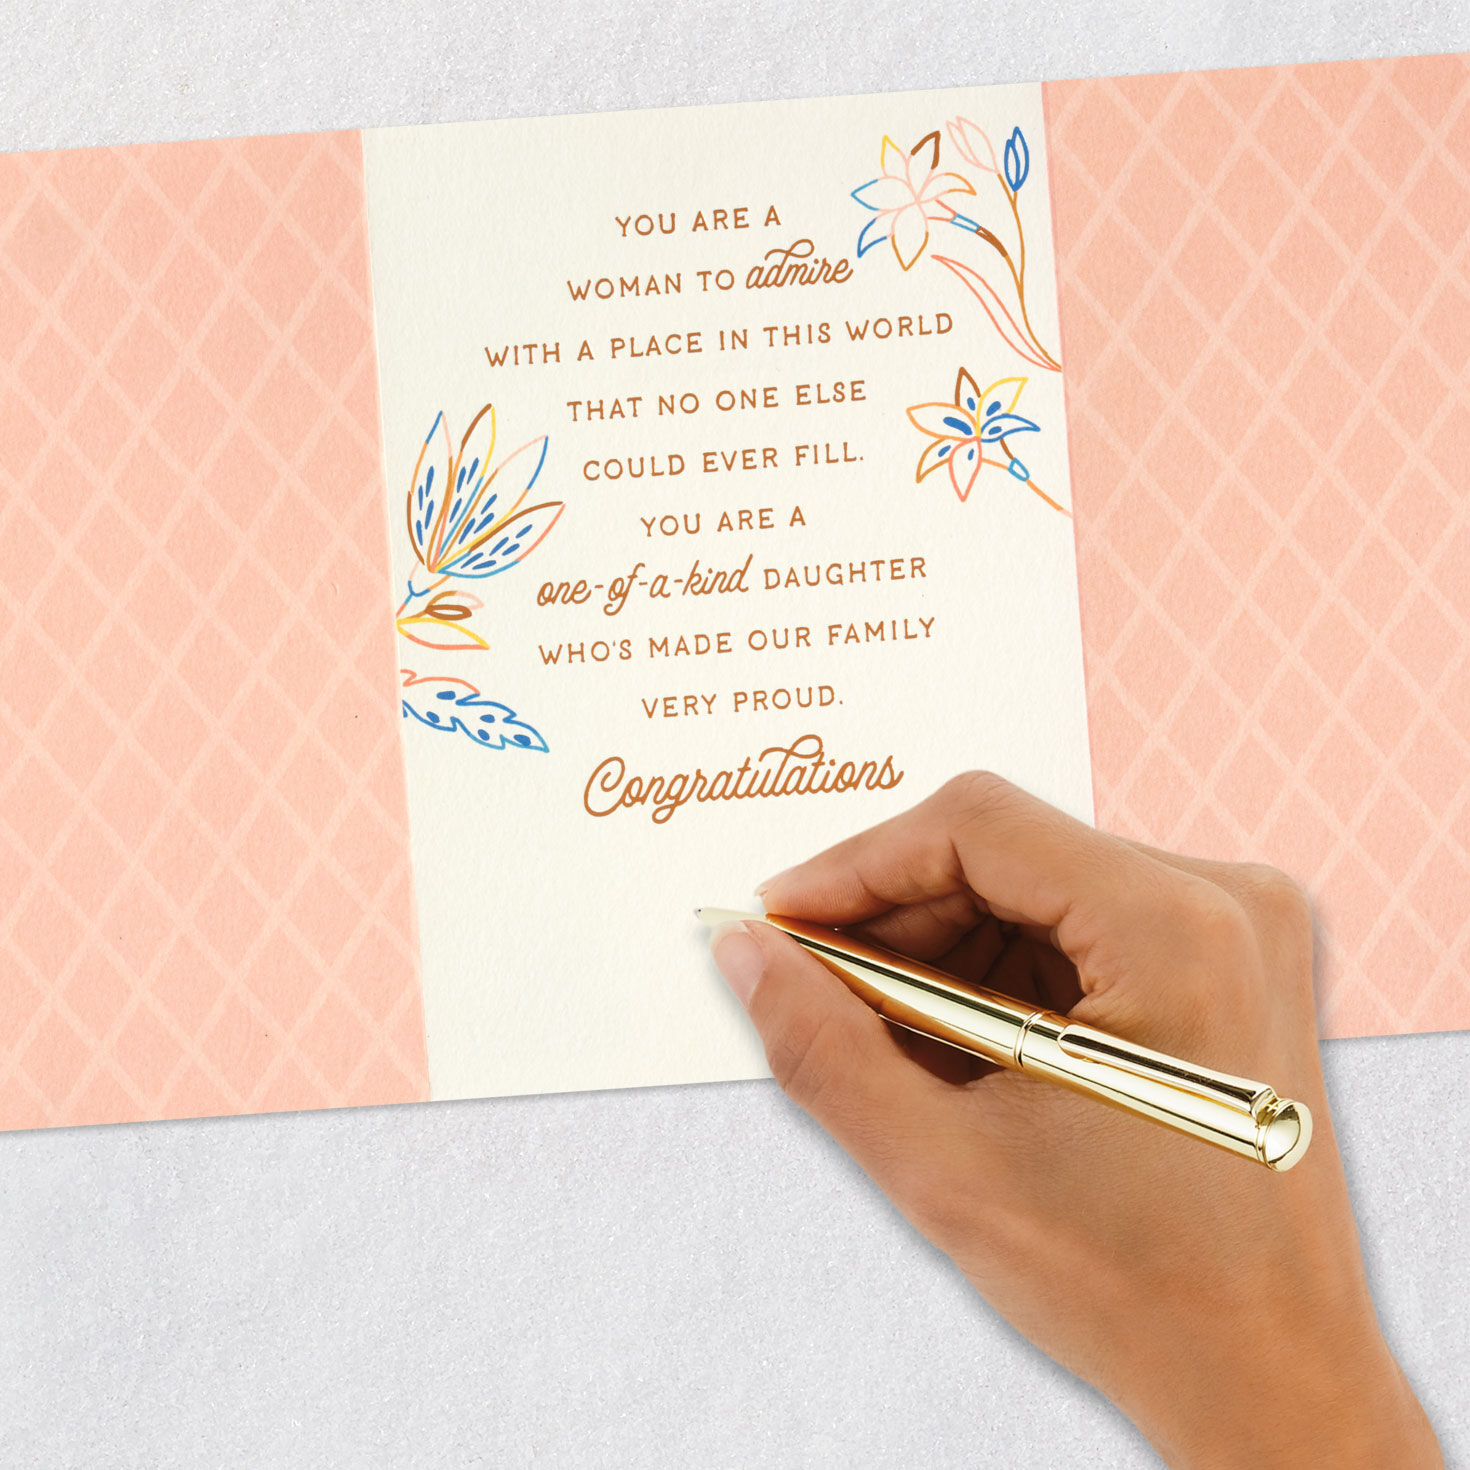 YOU ARE A
WOMAN TO admire
WITH A PLACE IN THIS WORLD
THAT NO ONE ELSE
COULD EVER FILL.
YOU ARE A
one-of-a-kind DAUGHTER
WHO'S MADE OUR FAMILY
VERY PROUD.
Congratulations